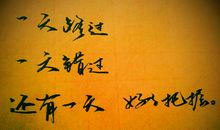 一天路过
一天错过
还有一天 好好把握。